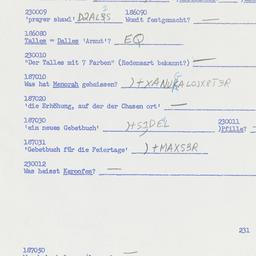 230009 186090
'prayer shawl' D2AL8S Womit festgemacht? —
186080
Tallem = Dalles 'Armut'? EQ
230010
"Der Talles mit 7 Farben" (Redensart bekannt?) —
187010
Was hat Menorah geheissen? )+XANUKALOJXRT3R
187020
'die Erhöhung, auf der der Chasen ort' —
187030 230011
'ein neues Gebetbuch' )+SIDEL )Pfille? —
187031
'Gebetbuch für die Feiertage' )+MAXS3R
230012
Was heisst Keroofen? —
231
187050